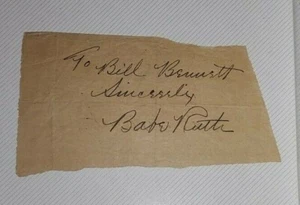 To Bill Bennett
Sincerely
Babe Ruth